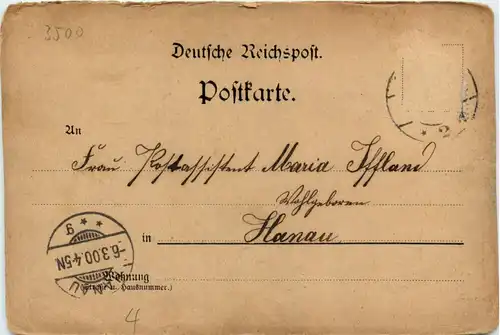 3500
Deutsche Reichspost.
Postkarte.
An
Frau Postassistent Maria Iffland
Wohlgeboren
in Hanau
* * g
-6.3.00.4-5N
HANAU
Wohnung
(Straße u. Hausnummer.)
4